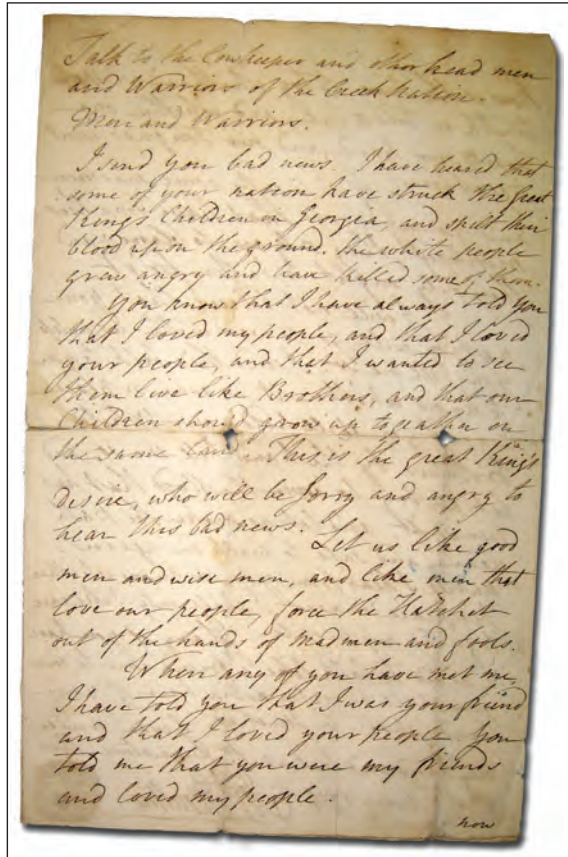 Talk to the Cowkeeper and other head men
and Warriors of the Creek Nation.
Men and Warriors.
I send you bad news. I have heared that
some of your nation have struck the Great
King's Children in Georgia, and spilt their
blood upon the ground. the white people
grew angry and have killed some of them.
you know that I have always told you
that I loved my people, and that I loved
your people, and that I wanted to see
them live like Brothers, and that our
Children should grow up togeather on
the same land. This is the great King's
desire, who will be sorry and angry to
hear this bad news. Let us like good
men and wise men, and like men that
love our people, force the Hatchet
out of the hands of madmen and fools.
When any of you have met me,
I have told you that I was your friend
and that I loved your people you
told me that you were my friends
and loved my people.
now